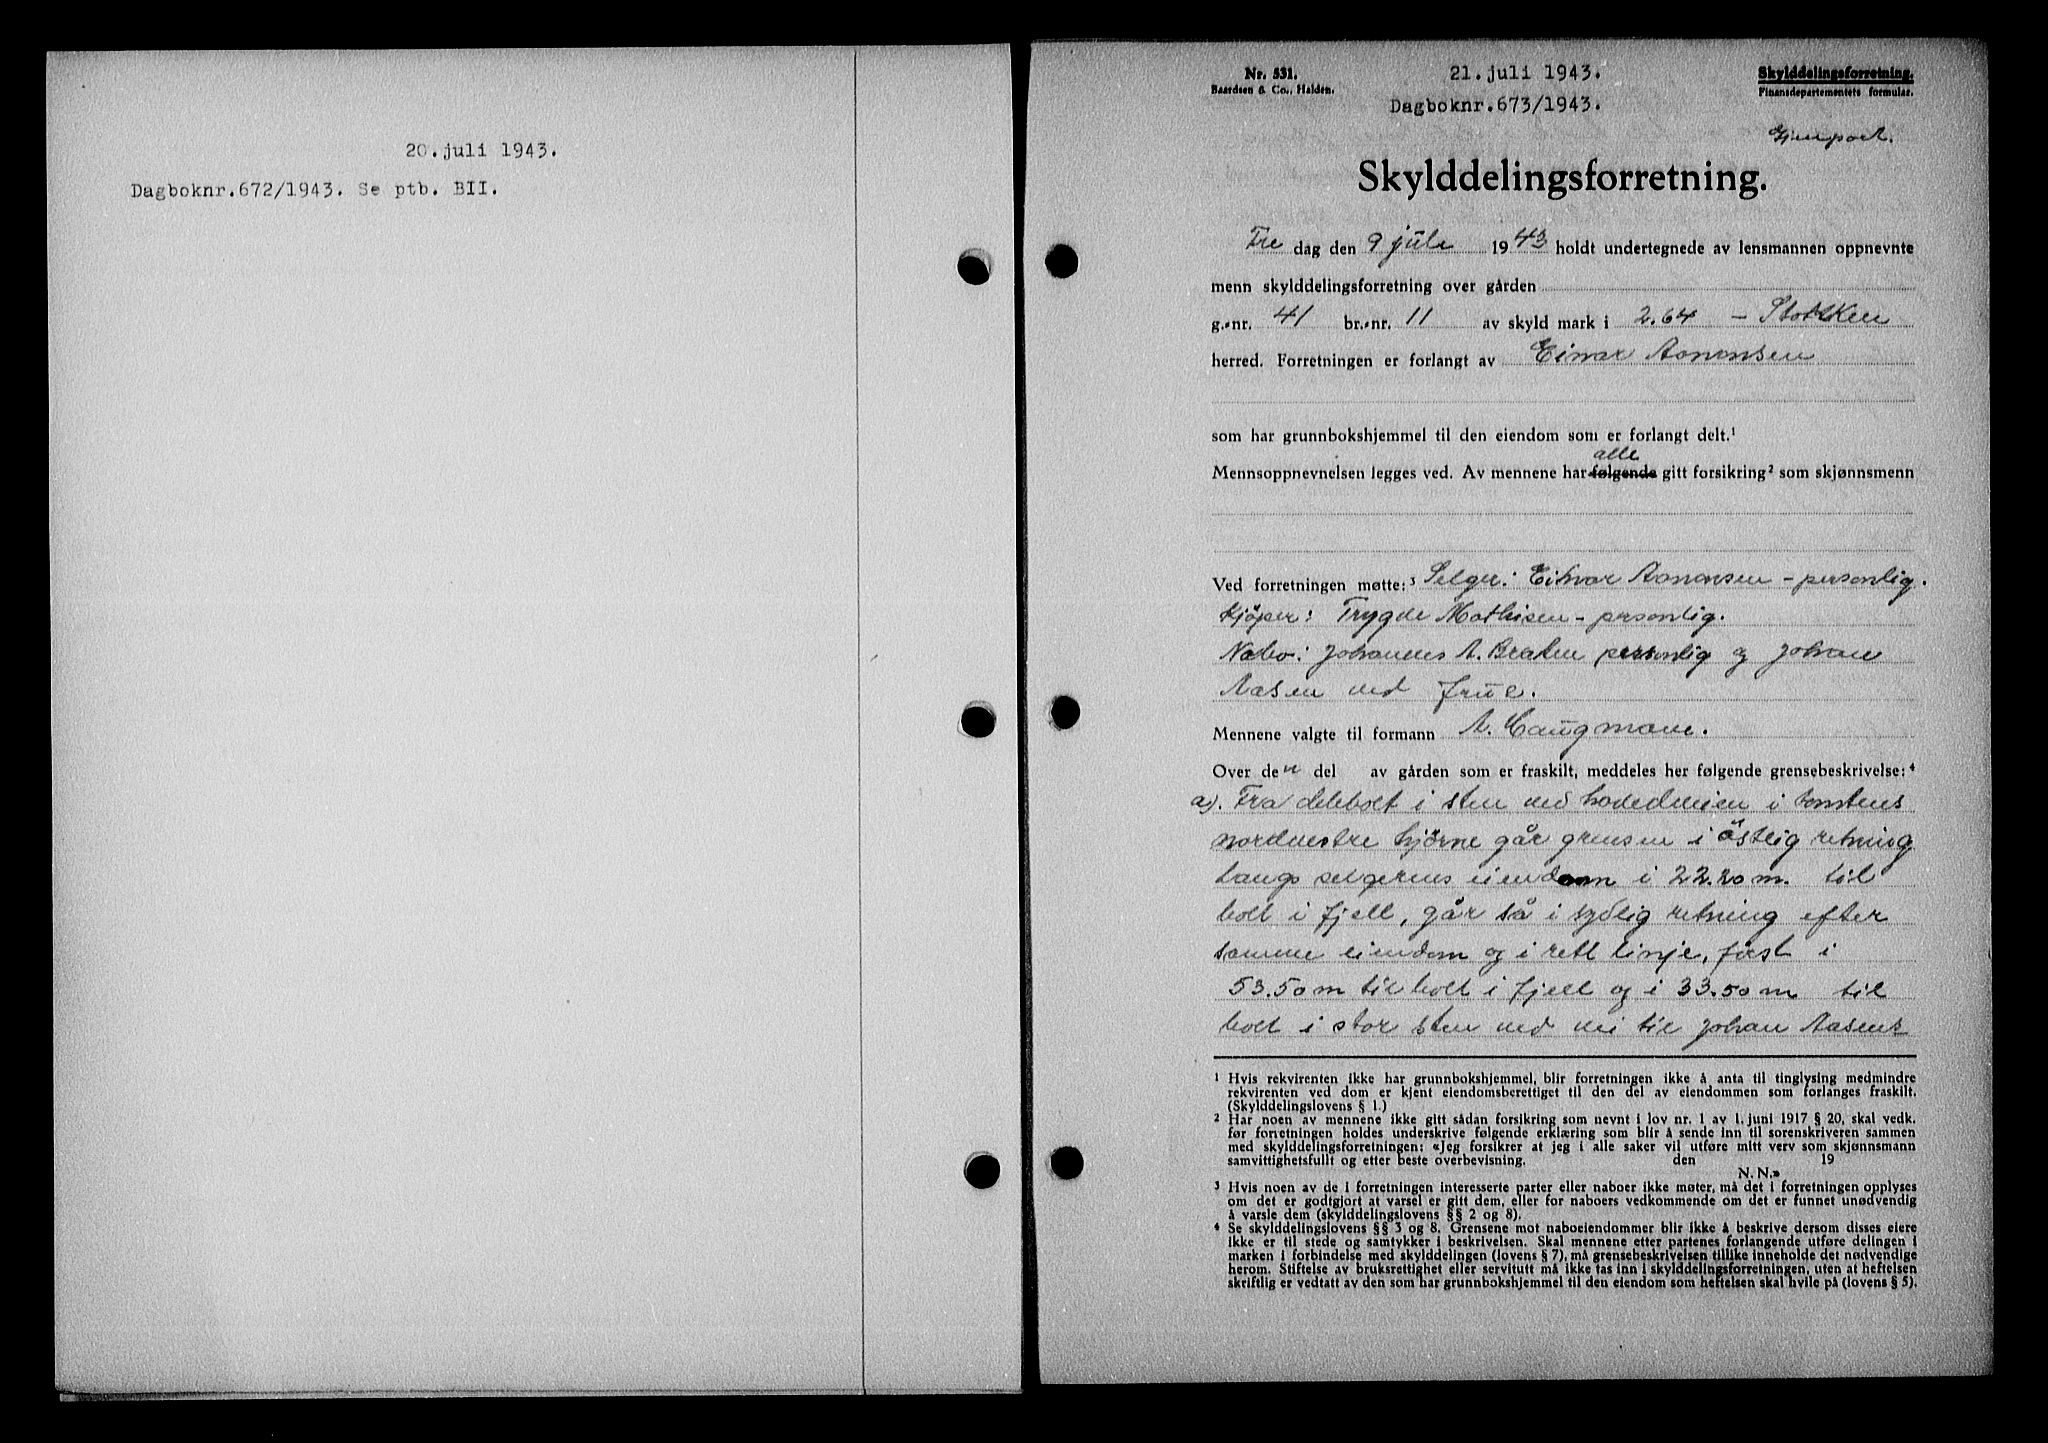 20. juli 1943.
Dagboknr.672/1943. Se ptb. BII.
Nr. 531.
Baardsen & Co., Halden.
21. juli 1943.
Dagboknr.673/1943.
Skylddelingsforretning.
Finansdepartementets formular.
Gjenpart.
Skylddelingsforretning.
Fre dag den 9 juli 1943 holdt undertegnede av lensmannen oppnevnte
menn skylddelingsforretning over gården
g.-nr. 41 br.-nr. 11 av skyld mark i 2.64 – Stokken
herred. Forretningen er forlangt av Einar Aanonsen
som har grunnbokshjemmel til den eiendom som er forlangt delt.¹
alle
Mennsoppnevnelsen legges ved. Av mennene har følgende gitt forsikring² som skjønnsmenn
Ved forretningen møtte:³ Selger: Einar Aanonsen – personlig.
Kjöper: Trygve Mathisen – personlig.
Nabo: Johannes A. Braten personlig og Johan
Aasen ved frue.
Mennene valgte til formann A. Haugmoen.
Over den del av gården som er fraskilt, meddeles her følgende grensebeskrivelse:⁴
a). Fra delebolt i sten ved hovedveien i tomtens
nordvestre hjörne går grensen i östlig retning
langs selgerens eiendom i 22.20 m. til
bolt i fjell, går så i sydlig retning efter
samme eiendom og i rett linje, först i
53.50 m til bolt i fjell og i 33.50 m til
bolt i stor sten ved vei til Johan Aasens
¹ Hvis rekvirenten ikke har grunnbokshjemmel, blir forretningen ikke å anta til tinglysing medmindre
rekvirenten ved dom er kjent eiendomsberettiget til den del av eiendommen som forlanges fraskilt.
(Skylddelingslovens § 1.)
² Har noen av mennene ikke gitt sådan forsikring som nevnt i lov nr. 1 av 1. juni 1917 § 20, skal vedk.
før forretningen holdes underskrive følgende erklæring som blir å sende inn til sorenskriveren sammen
med skylddelingsforretningen: «Jeg forsikrer at jeg i alle saker vil utføre mitt verv som skjønnsmann
samvittighetsfullt og etter beste overbevisning. den 19
N. N.»
³ Hvis noen av de i forretningen interesserte parter eller naboer ikke møter, må det i forretningen opplyses
om det er godtgjort at varsel er gitt dem, eller for naboers vedkommende om det er funnet unødvendig
å varsle dem (skylddelingslovens §§ 2 og 8).
⁴ Se skylddelingslovens §§ 3 og 8. Grensene mot naboeiendommer blir ikke å beskrive dersom disses eiere
ikke er til stede og samtykker i beskrivelsen. Skal mennene etter partenes forlangende utføre delingen i
marken i forbindelse med skylddelingen (lovens § 7), må grensebeskrivelsen tillike inneholde det nødvendige
herom. Stiftelse av bruksrettighet eller servitutt må ikke tas inn i skylddelingsforretningen, uten at heftelsen
skriftlig er vedtatt av den som har grunnbokshjemmel til den eiendom som heftelsen skal hvile på (lovens § 5).